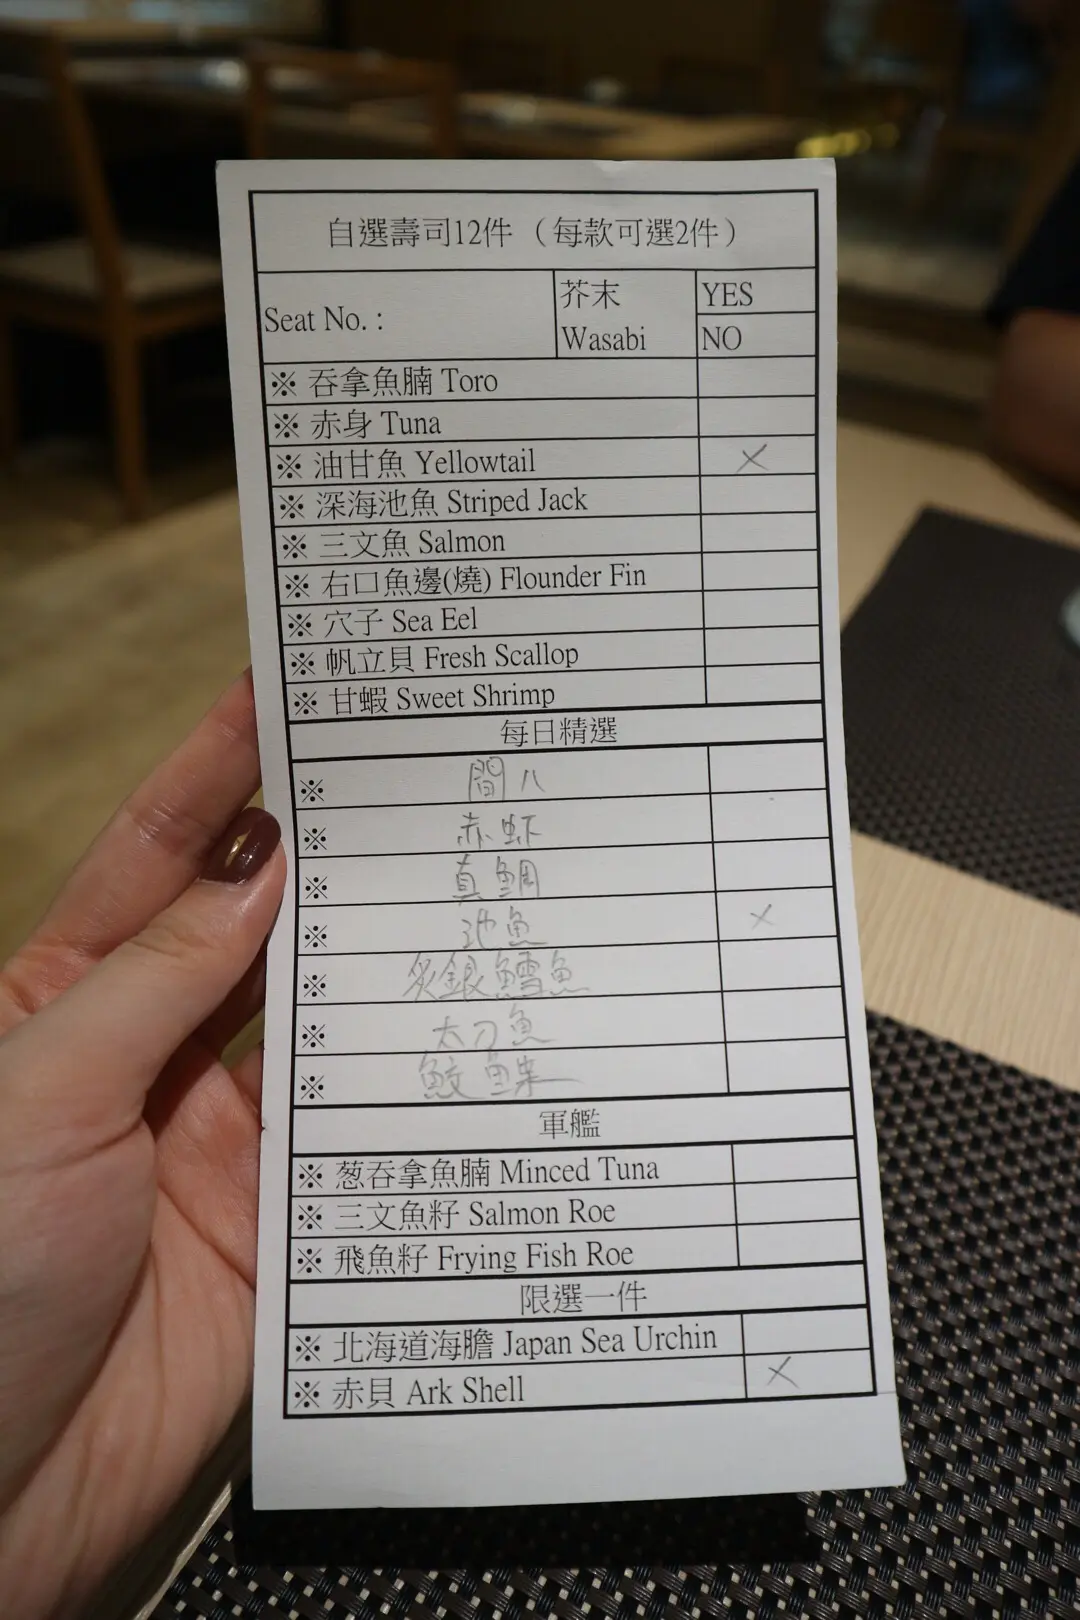 自選壽司12件（每款可選2件）
Seat No. :
芥末
Wasabi
YES
NO
※ 吞拿魚腩 Toro
※ 赤身 Tuna
※ 油甘魚 Yellowtail ×
※ 深海池魚 Striped Jack
※ 三文魚 Salmon
※ 右口魚邊(燒) Flounder Fin
※ 穴子 Sea Eel
※ 帆立貝 Fresh Scallop
※ 甘蝦 Sweet Shrimp
每日精選
※ 間八
※ 赤虾
※ 真鯛
※ 池魚 ×
※ 炙銀鱈魚
※ 太刀魚
※ 鮫鰈
軍艦
※ 葱吞拿魚腩 Minced Tuna
※ 三文魚籽 Salmon Roe
※ 飛魚籽 Frying Fish Roe
限選一件
※ 北海道海膽 Japan Sea Urchin
※ 赤貝 Ark Shell ×